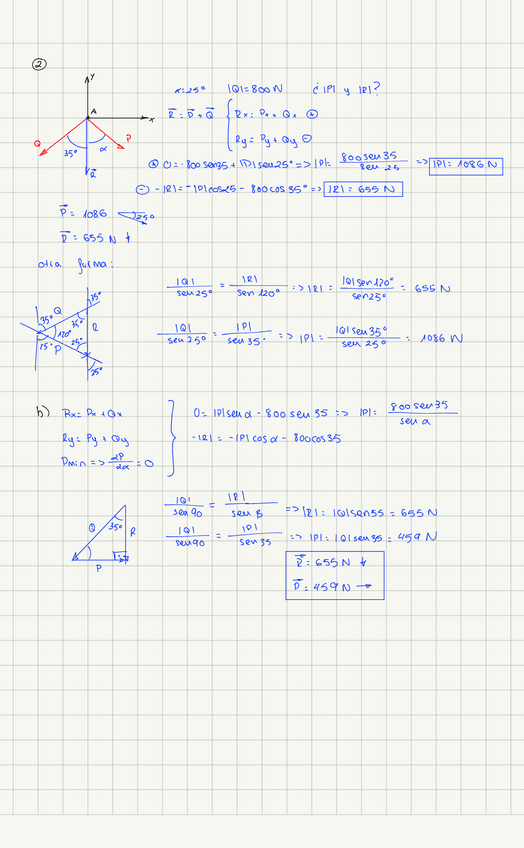 2
y
A
x
Q
P
35°
α
R⃗
α=25° |Q|=800N ¿|P| y |R|?
R⃗ = P⃗ + Q⃗ { Rx = Px + Qx
Ry = Py + Qy
0 = -800 sen35 + |P| sen 25° => |P| = 800 sen 35 / sen 25 => |P| = 1086 N
-|R| = -|P| cos25 - 800 cos 35° => |R| = 655 N
P⃗ = 1086 25°
R⃗ = 655 N ↓
otra forma:
|Q| / sen 25° = |R| / sen 120° => |R| = |Q| sen 120° / sen 25° = 655 N
|Q| / sen 25° = |P| / sen 35° => |P| = |Q| sen 35° / sen 25° = 1086 N
35°
35° Q 35°
120° R
25° P 25°
25°
b) Rx = Px + Qx
Ry = Py + Qy
Pmin => ∂P/∂α = 0
0 = |P| sen α - 800 sen 35 => |P| = 800 sen 35 / sen α
-|R| = -|P| cos α - 800 cos 35
Q 35° R
P
|Q| / sen 90 = |R| / sen β => |R| = |Q| sen 55 = 655 N
|Q| / sen 90 = |P| / sen 35 => |P| = |Q| sen 35 = 459 N
R⃗ = 655 N ↓
P⃗ = 459 N →